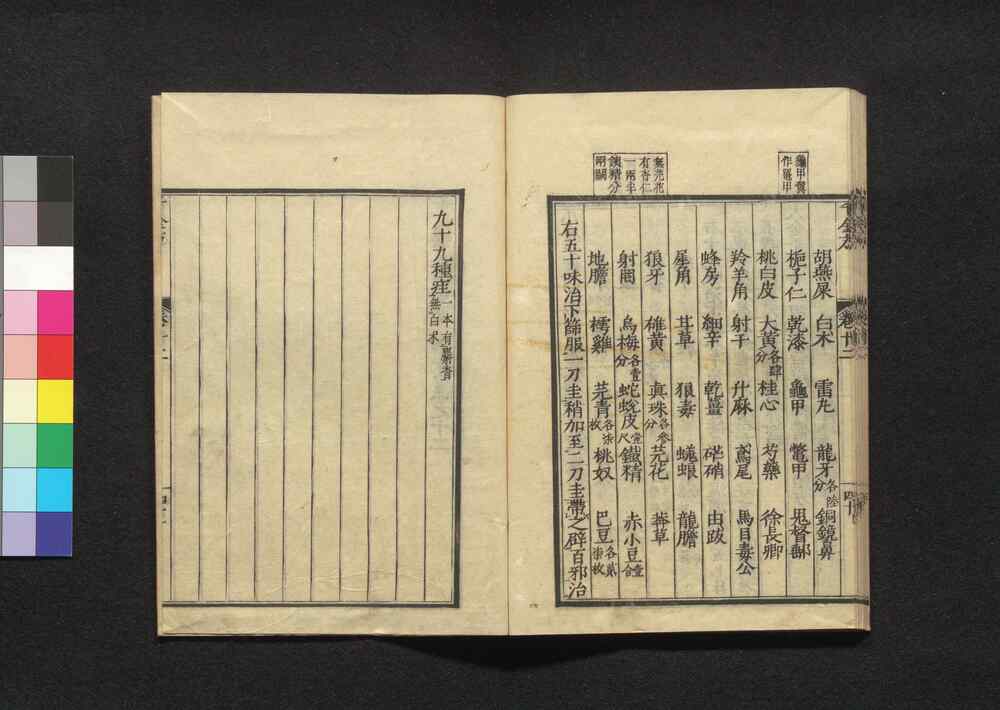 千金方 卷廿二 四十
胡鷰屎 白朮 雷丸 龍牙各陸分 銅鏡鼻
梔子仁 乾漆 龜甲 鼈甲 鬼督郵
桃白皮 大黃各肆分 桂心 芍藥 徐長卿
羚羊角 射干 升麻 鳶尾 馬目毒公
蜂房 細辛 乾薑 芒硝 由跋
犀角 甘草 狼毒 蜣蜋 龍膽
狼牙 雄黃 真珠各參分 芫花 莽草
射罔 烏梅各壹分 蛇蛻皮壹尺 鐵精 赤小豆壹合
地膽 樗雞 芫青各柒枚 桃奴 巴豆各貳柒枚
右五十味治下篩服一刀圭稍加至二刀圭帶之辟百邪治
龜甲翼
作黿甲
無芫花
有杏仁
一兩半
鐵精分
兩闕
九十九種疰一本有麝香無白朮